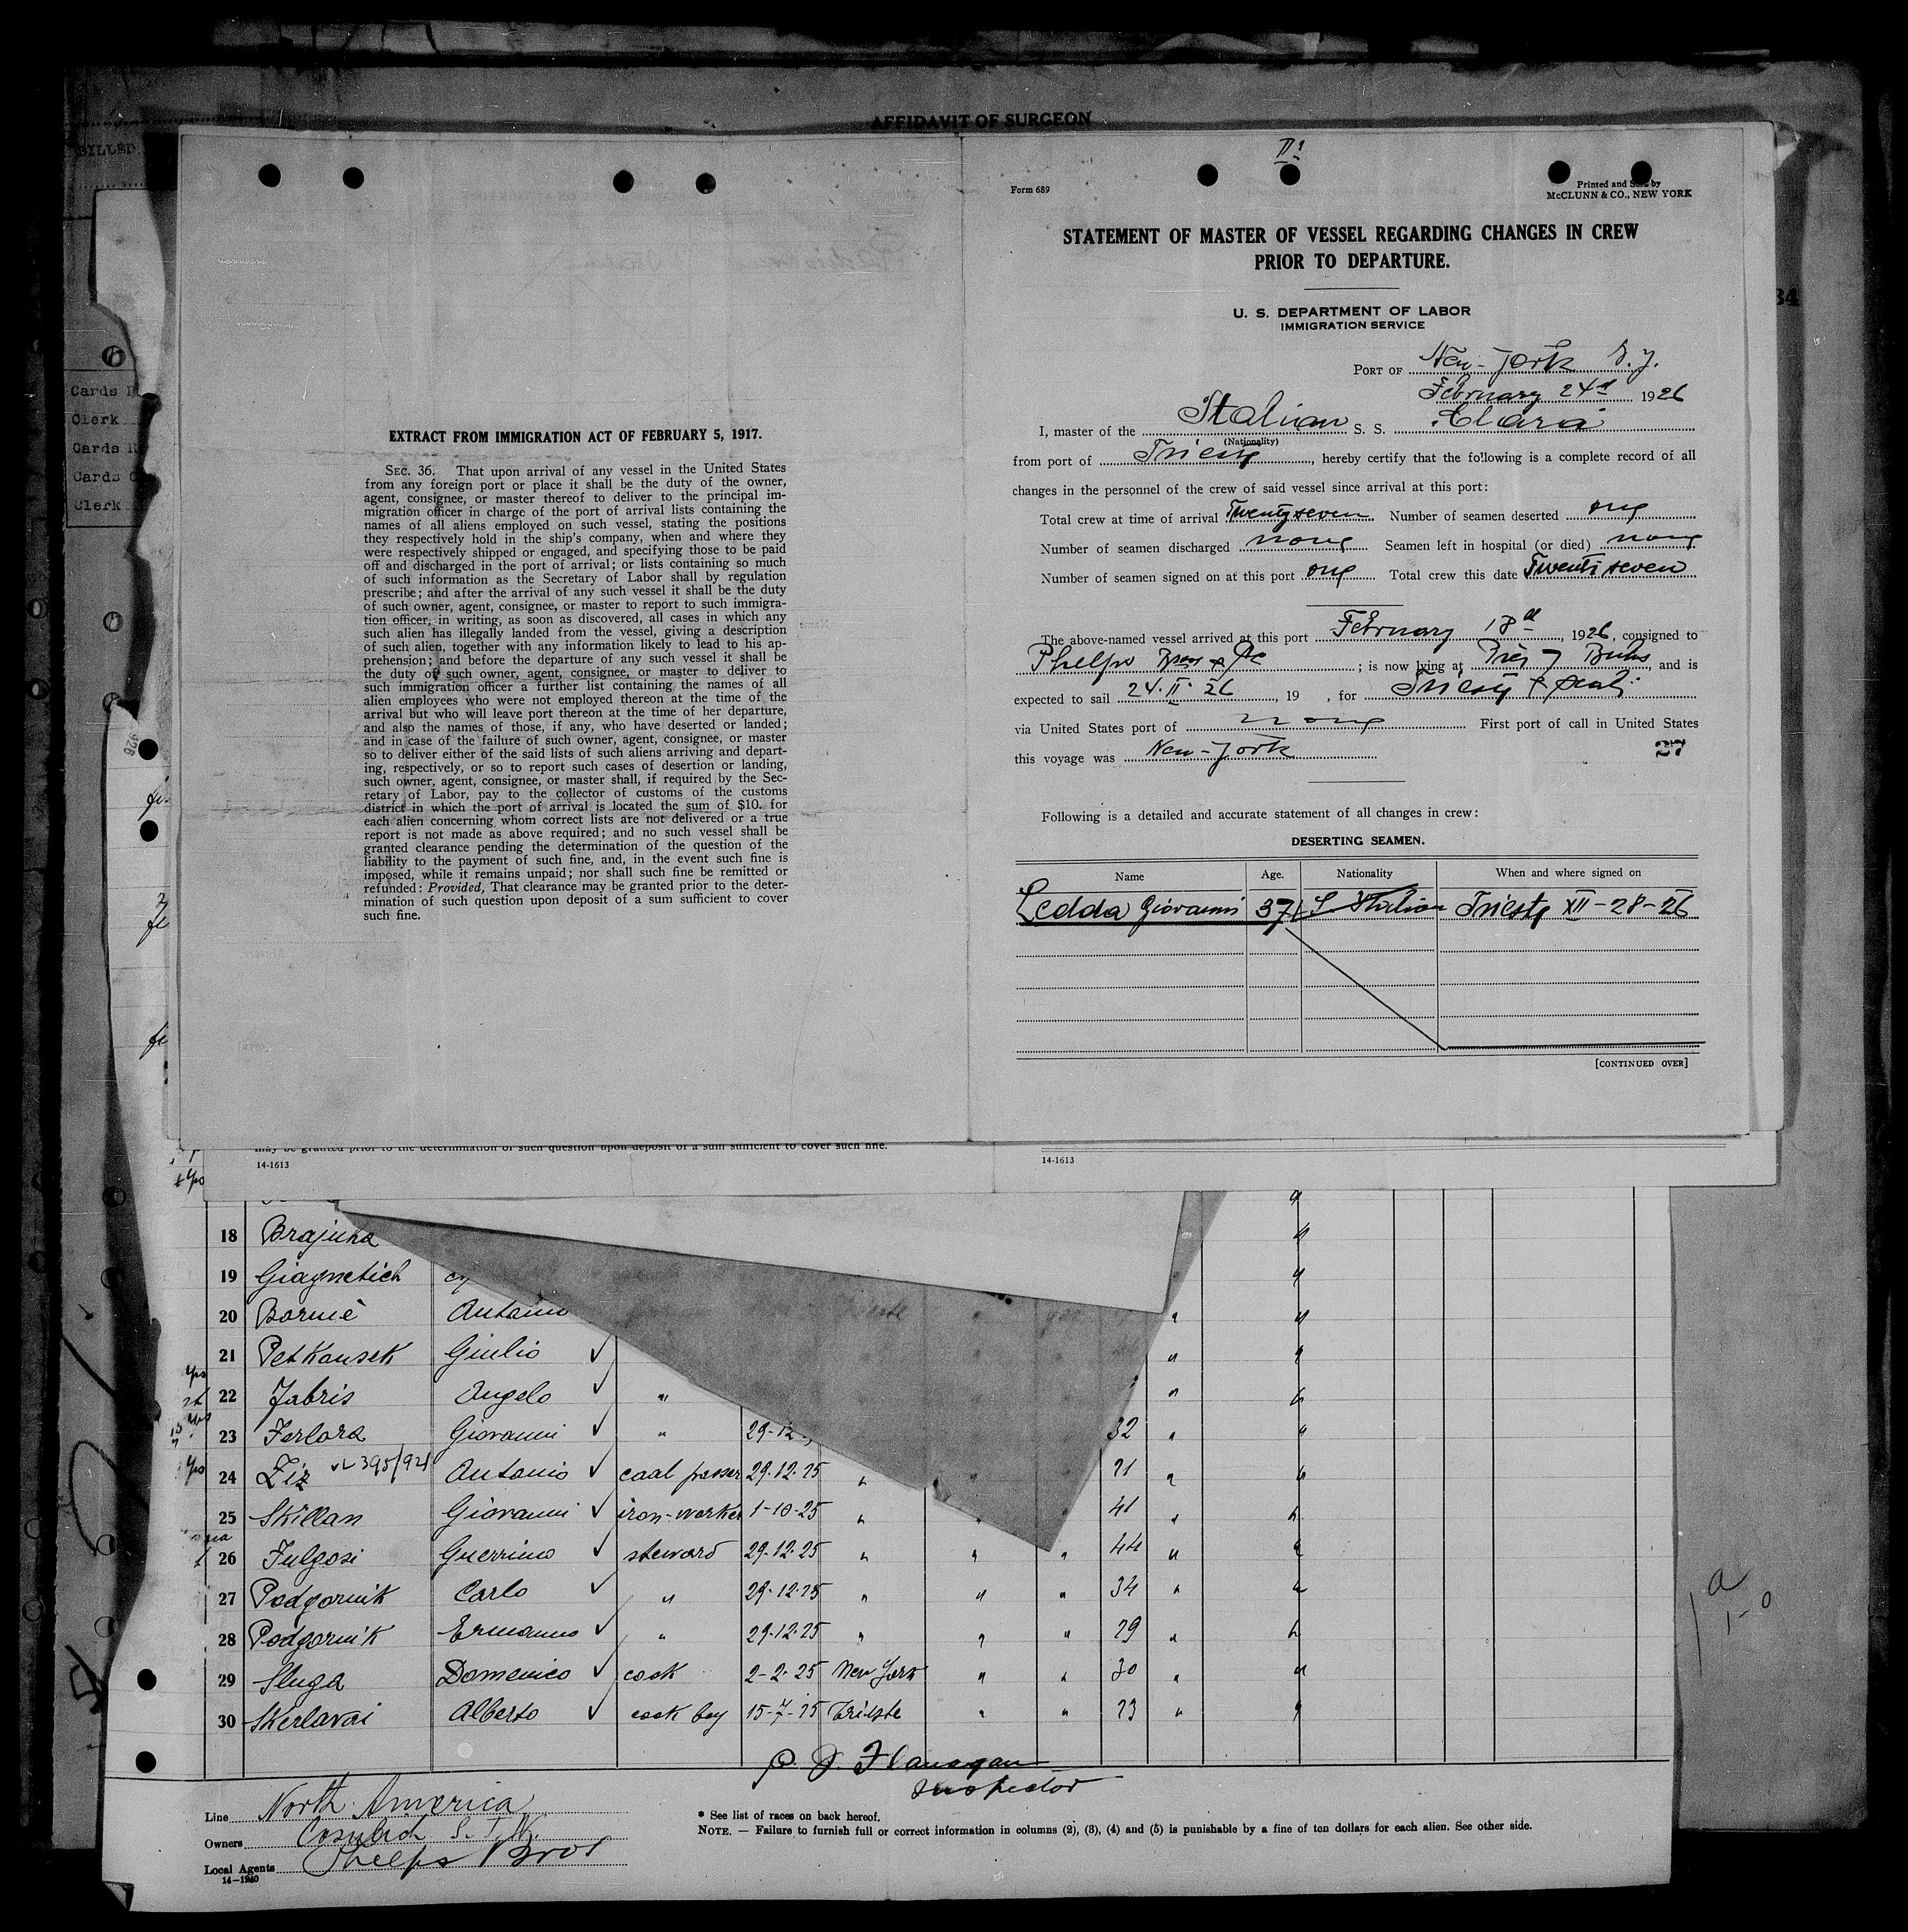 AFFIDAVIT OF SURGEON
BILLED
Cards
Clerk
Cards
Cards
Clerk
EXTRACT FROM IMMIGRATION ACT OF FEBRUARY 5, 1917.
SEC. 36. That upon arrival of any vessel in the United States
from any foreign port or place it shall be the duty of the owner,
agent, consignee, or master thereof to deliver to the principal im-
migration officer in charge of the port of arrival lists containing the
names of all aliens employed on such vessel, stating the positions
they respectively hold in the ship's company, when and where they
were respectively shipped or engaged, and specifying those to be paid
off and discharged in the port of arrival; or lists containing so much
of such information as the Secretary of Labor shall by regulation
prescribe; and after the arrival of any such vessel it shall be the duty
of such owner, agent, consignee, or master to report to such immigra-
tion officer, in writing, as soon as discovered, all cases in which any
such alien has illegally landed from the vessel, giving a description
of such alien, together with any information likely to lead to his ap-
prehension; and before the departure of any such vessel it shall be
the duty of such owner, agent, consignee, or master to deliver to
such immigration officer a further list containing the names of all
alien employees who were not employed thereon at the time of the
arrival but who will leave port thereon at the time of her departure,
and also the names of those, if any, who have deserted or landed;
and in case of the failure of such owner, agent, consignee, or master
so to deliver either of the said lists of such aliens arriving and depart-
ing, respectively, or so to report such cases of desertion or landing,
such owner, agent, consignee, or master shall, if required by the Sec-
retary of Labor, pay to the collector of customs of the customs
district in which the port of arrival is located the sum of $10. for
each alien concerning whom correct lists are not delivered or a true
report is not made as above required; and no such vessel shall be
granted clearance pending the determination of the question of the
liability to the payment of such fine, and, in the event such fine is
imposed, while it remains unpaid; nor shall such fine be remitted or
refunded: Provided, That clearance may be granted prior to the deter-
mination of such question upon deposit of a sum sufficient to cover
such fine.
Form 689
Printed and Sold by
McCLUNN & CO., NEW YORK
STATEMENT OF MASTER OF VESSEL REGARDING CHANGES IN CREW
PRIOR TO DEPARTURE.
U. S. DEPARTMENT OF LABOR
IMMIGRATION SERVICE
PORT OF New-York N.Y.
February 24d 1926
I, master of the Italian S. S. Clara
(Nationality)
from port of Trieste, hereby certify that the following is a complete record of all
changes in the personnel of the crew of said vessel since arrival at this port:
Total crew at time of arrival Twentyseven. Number of seamen deserted one
Number of seamen discharged none Seamen left in hospital (or died) none
Number of seamen signed on at this port one Total crew this date Twentiseven
The above-named vessel arrived at this port February 18d, 1926, consigned to
Phelps Bros & Co; is now lying at Pier 7 Bush and is
expected to sail 24.II.26, 19 , for Trieste &
via United States port of none First port of call in United States
this voyage was New-York 27
Following is a detailed and accurate statement of all changes in crew:
DESERTING SEAMEN.
Name Age. Nationality When and where signed on
Ledda Giovanni 37 S Italian Trieste XII-28-26
[CONTINUED OVER]
may be granted prior to the determination of such question upon deposit of a sum sufficient to cover such fine.
14-1613 14-1613
18 Brajuka "
19 Giagnetich "
20 Bormè Antonio " "
21 Petkausek Giulio ✓ " "
22 Fabris Angelo ✓ " " "
23 Ferlora Giovanni ✓ " 29-12- 32 " "
24 Ziz 395/921 Antonio ✓ coal passer 29.12.25 " 21 " "
25 Skillan Giovanni ✓ iron-worker 1-10-25 " " 41 " "
26 Fulgosi Guerrino ✓ steward 29.12.25 " " " 44 " "
27 Podgornik Carlo ✓ " 29-12-25 " " " 34 " "
28 Podgornik Ermanno ✓ " 29-12-25 " " " 29 " "
29 Sluga Domenico ✓ cook 2-2-25 New York " " 30 " "
30 Skerlavai Alberto ✓ cook boy 15-7-25 Trieste " " 23 " "
P. J. Flanagan
Inspector
Line North America
Owners Cosulich S. T. N.
Local Agents Phelps Bros
14-1240
* See list of races on back hereof.
NOTE. — Failure to furnish full or correct information in columns (2), (3), (4) and (5) is punishable by a fine of ten dollars for each alien. See other side.